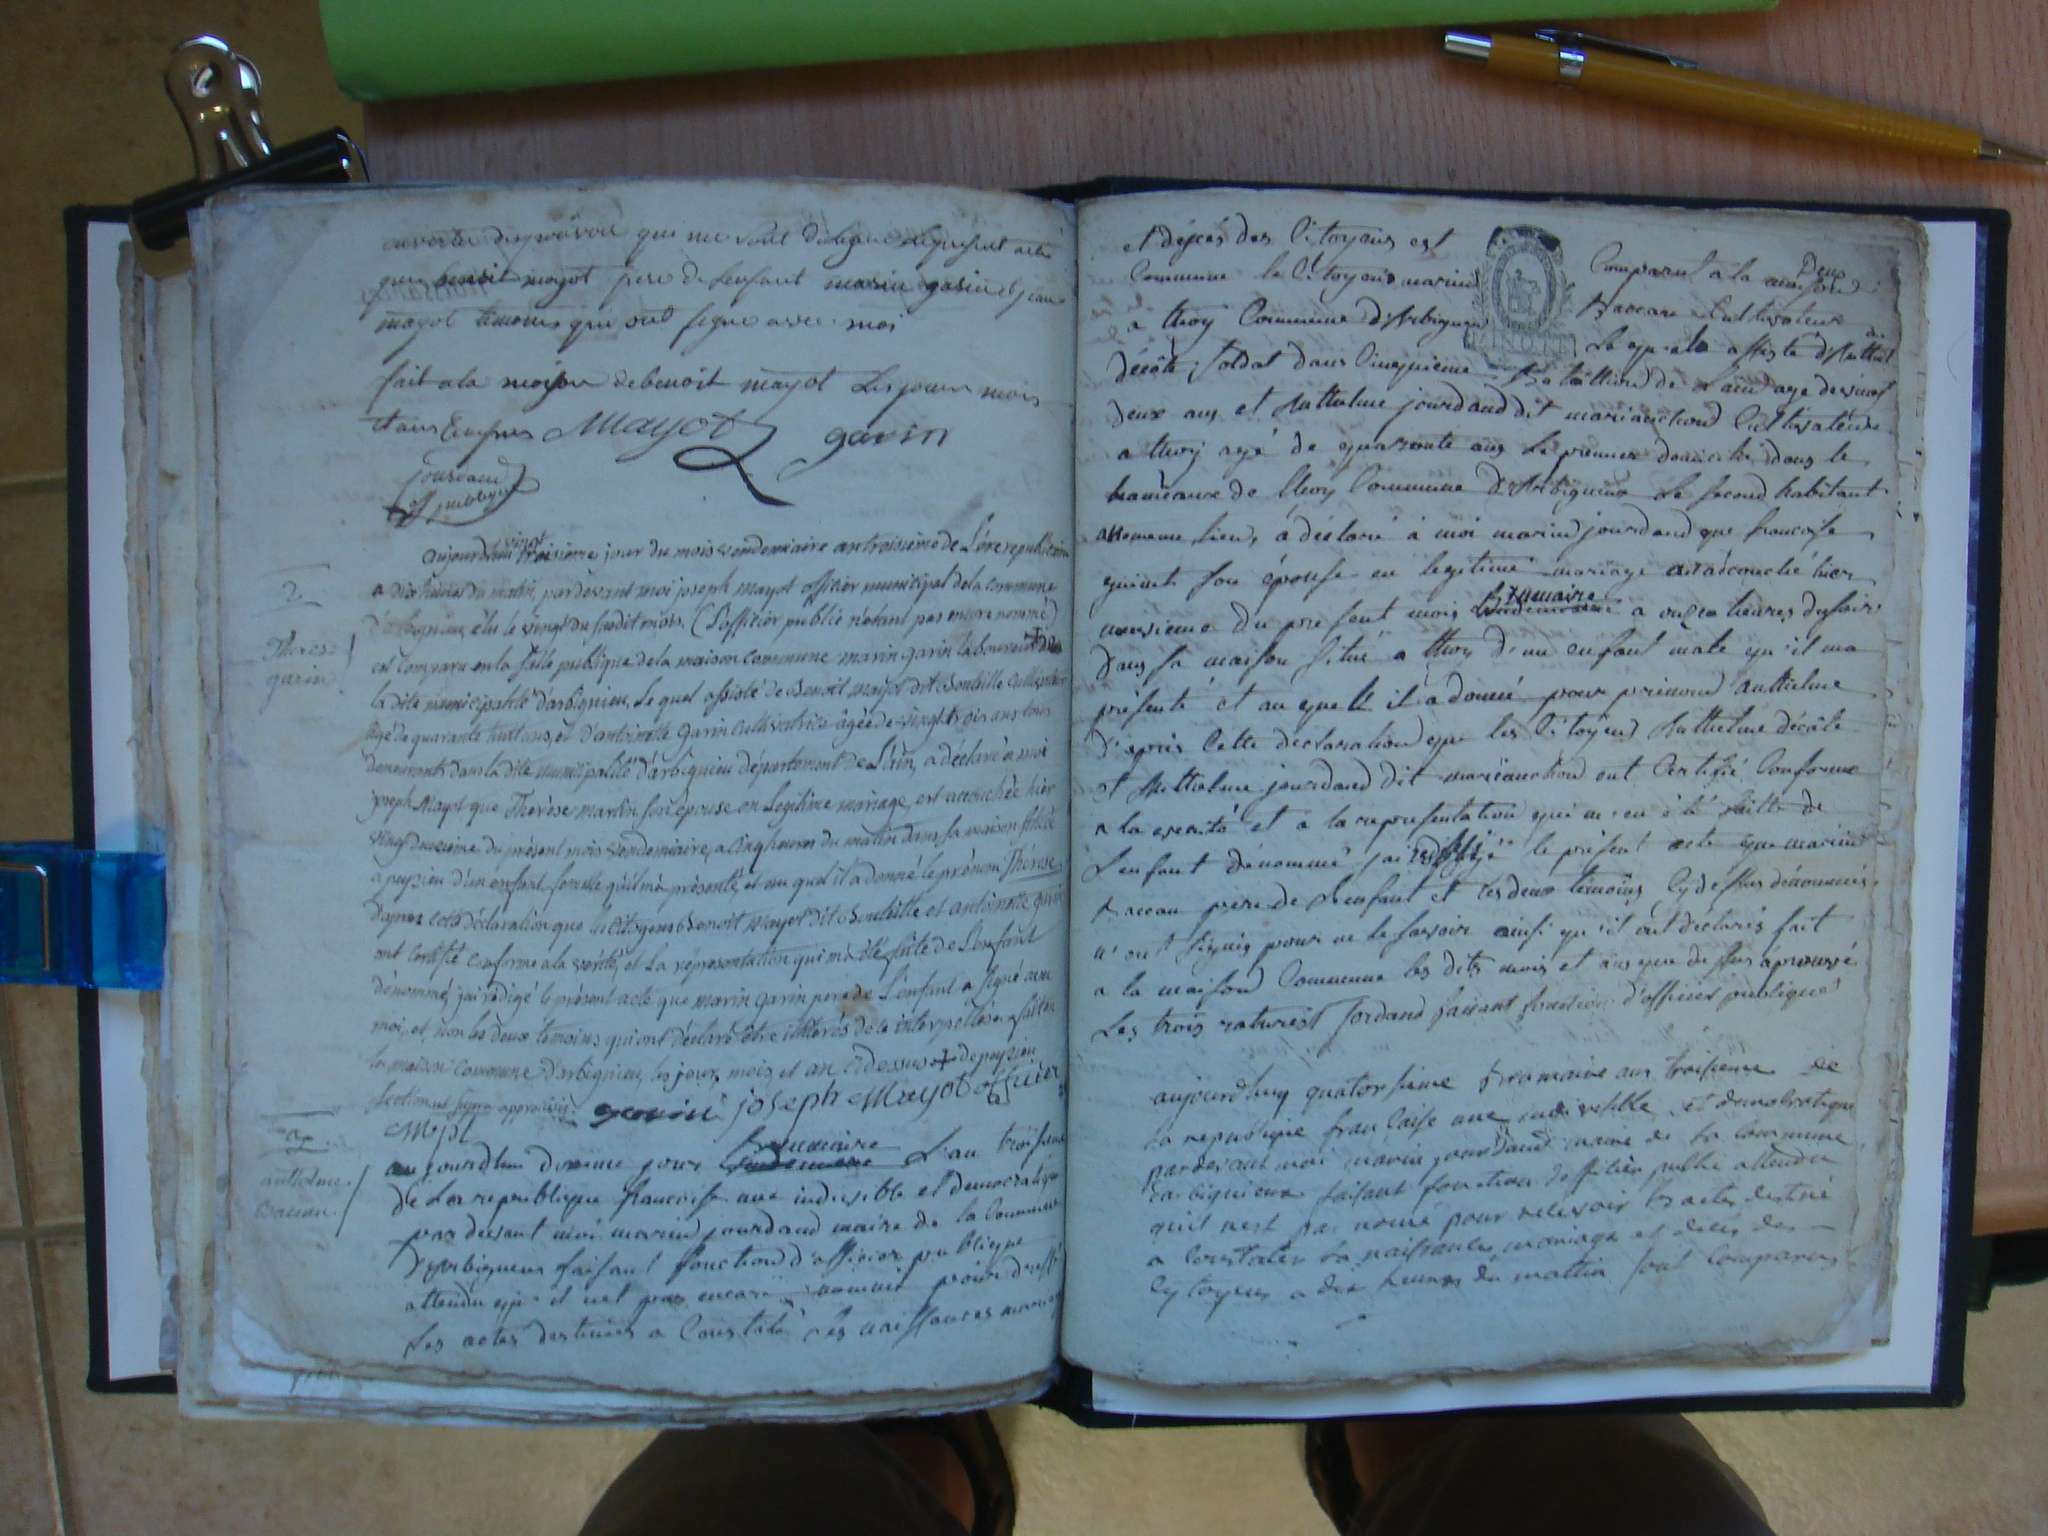 qui me
que benoit mayot pere de Lenfant marin garin et jean
mayot temoins qui ont signe avec moi
fait a la maison de benoit mayot Les jour mois
et ans
Mayot garin
jourdand
of publique
aujourdhui vingt troisieme jour du mois vendemiaire an troisieme de L'ere republicaine
a dix heures du matin, pardevant moi joseph mayot officier municipal de la commune
d'arbignieu, élu le vingt du susdit mois, (L'officier public n'etant pas encore nommé)
est comparu en la salle publique de la maison commune marin garin laboureur + de
la dite municipalité d'arbignieu, Le quel assisté de Benoit mayot dit Bouteille cultivateur
âgé de quarante huit ans, et d'antoinette garin cultivatrice âgée de vingt trois ans tous
demeurants dans la dite municipalité d'arbignieu département de L'ain, a déclaré a moi
joseph Mayot que Thérèse martin son epouse en Legitime mariage, est accouchée hier
vingt deuxieme du présent mois vendemiaire, a cinq heures du matin dans sa maison située
a peyzieu d'un enfant femelle qu'il m'a présenté, et au quel il a donné le prénom Thérèse,
d'apres cette déclaration que les citoyens Benoit mayot dit Bouteille et antoinette garin
ont certifié conforme a la vérité, et La représentation qui m'a été faite de L'enfant
dénommé, j'ai rédigé le présent acte que marin garin pere de L'enfant a signé avec
moi, et non les deux témoins qui ont déclaré être illiterés de ce interpellés. fait en
la maison commune d'arbignieu, les jour, mois, et an ci dessus + de peyzieu
garin joseph Mayot officier
mpl
2
Therese
garin
2
anthelme
Baccau
aujourdhui douzieme jour Brumaire L'an troisieme
de La republique francoise une indivisible et democratique
par devant moi marin jourdand maire de la Commune
D'arbignieux faisant fonction d'officier publique
attendu qu'il n'et pas encore nommé pour dressé
Les actes destinés a Constaté Les naissances mariage
et déces des Citoyens est Comparut a la maison
Commune le Citoyens marin Baccau Cultivateur
a thoy Commune d'Arbignieux Le quel a assisté d'Anthelme
décôte soldat dans Cinquième Bataillion de L'ain agé de vingt
deux ans et Anthelme jourdand dit marianchond Cultivateur
a thoy agé de quarente ans Le premier domicilié dans le
hameaux de thoy Commune D'Arbignieux Le second habitant
au meme Lieu, a déclaré à moi marin jourdand que francoise
guinet son épouse en legitime mariage etait accouché hier
onzieme du present mois Brumaire a onze heures du soir
dans sa maison situé a thoy d'un enfant male qu'il ma
présenté et au quel il a donné pour prénond Anthelme
D'après Cette declaration que les Citoyens Anthelme décôte
et Anthelme jourdand dit marianchond ont Certifié Conforme
a la verité et a la representation qui m'en a été faitte de
L'enfant dénommé j'ai redigé le présent acte que marin
Baccau pere de L'enfant et les deux temoins Cy dessus dénommés
n'ont signés pour ne le savoir ainsi qu'il ont déclarés fait
a la maison Commune les dits mois et ans que dessus aprouvé
Les trois raturest Jordand faisant fonction d'officier publique
aujourdhuy quatorsieme Brumaire ans troisieme de
la republique francaise une indivisible et democratique
pardevant moi marin jourdand maire de la Commune
darbignieux faisant fonction dofficier public attendu
quil nest pas nomé pour recevoir les actes destiné
a Constater les naissances mariage et déces des
Cytoyens a dix heures du mattin sont Comparus